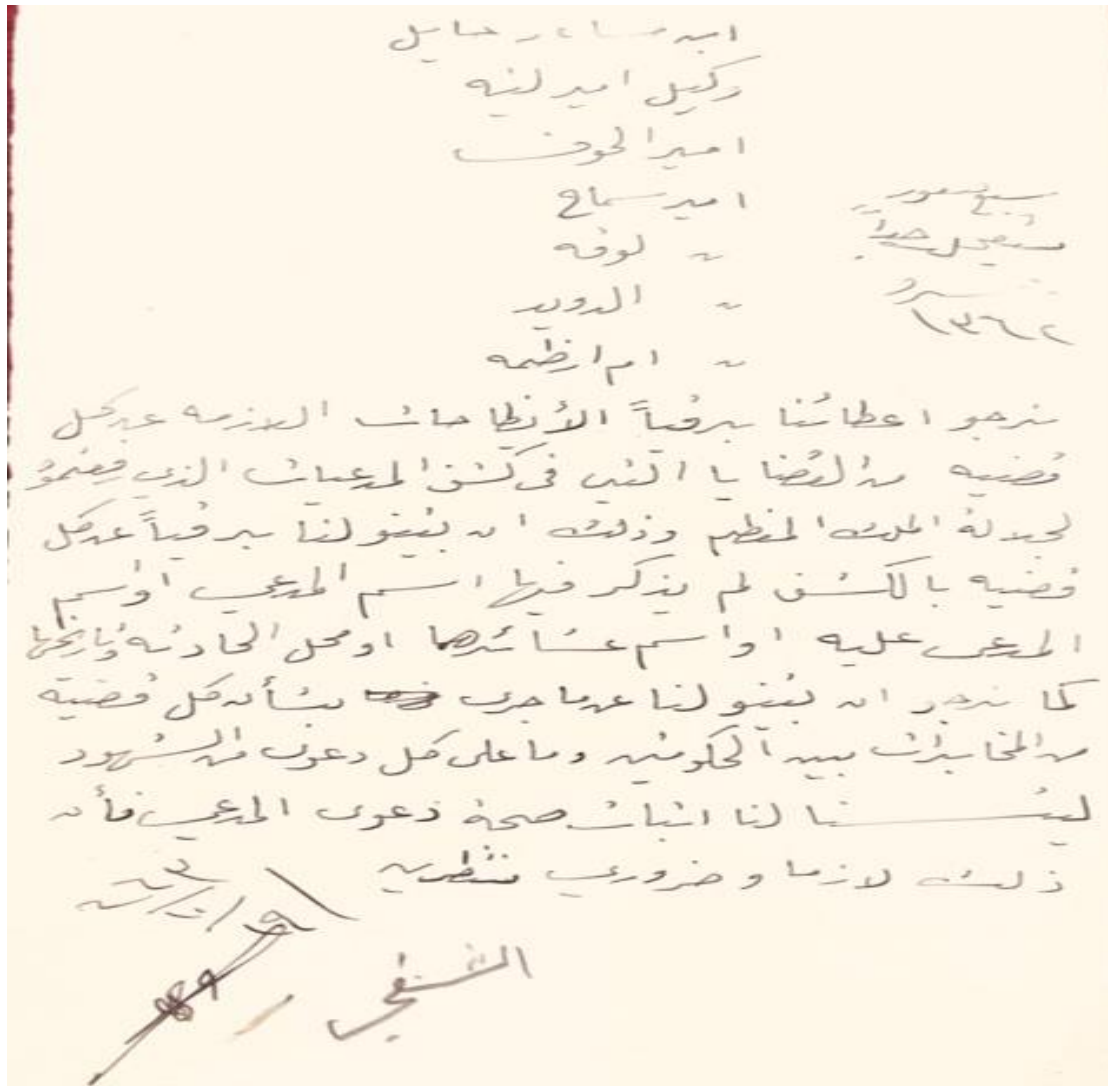 ابن مساعد حايل
وكيل امير لينه
امير الجوف
امير سماح
" لوقه
" الدويد
" ام ارظمه
مستعجل جداً
١٣٦٢
نرجو اعطائنا برقياً الأيظاحات اللازمه عن كل
قضيه من القضايا التي في كشف المدعيات الذي
لجلالة الملك المعظم وذلك ان تبينو لنا برقياً عن كل
قضيه بالكشف لم يذكر فيها اسم المدعي او اسم
المدعى عليه او اسم عشائرهما او محل الحادثه وتاريخها
كما نرجو ان تبينو لنا عن ما جرى بشأن كل قضية
من المخابرات بين الحكومتين وما على كل دعوى من الشهود
لنا اثبات صحة دعوى المدعي فأن
ذلك لازما وضروري منتظرين